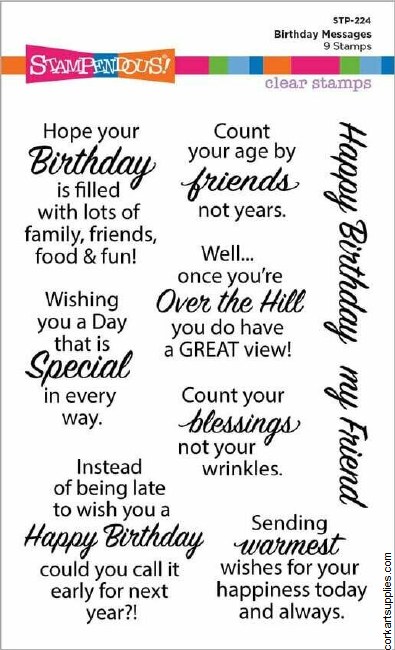 STP-224
Birthday Messages
9 Stamps
STAMPENDOUS!
clear stamps
Hope your
Birthday
is filled
with lots of
family, friends,
food & fun!
Count
your age by
friends
not years.
Happy Birthday my Friend
Well...
once you're
Over the Hill
you do have
a GREAT view!
Wishing
you a Day
that is
Special
in every
way.
Count your
blessings
not your
wrinkles.
Instead
of being late
to wish you a
Happy Birthday
could you call it
early for next
year?!
Sending
warmest
wishes for your
happiness today
and always.
corkartsupplies.com